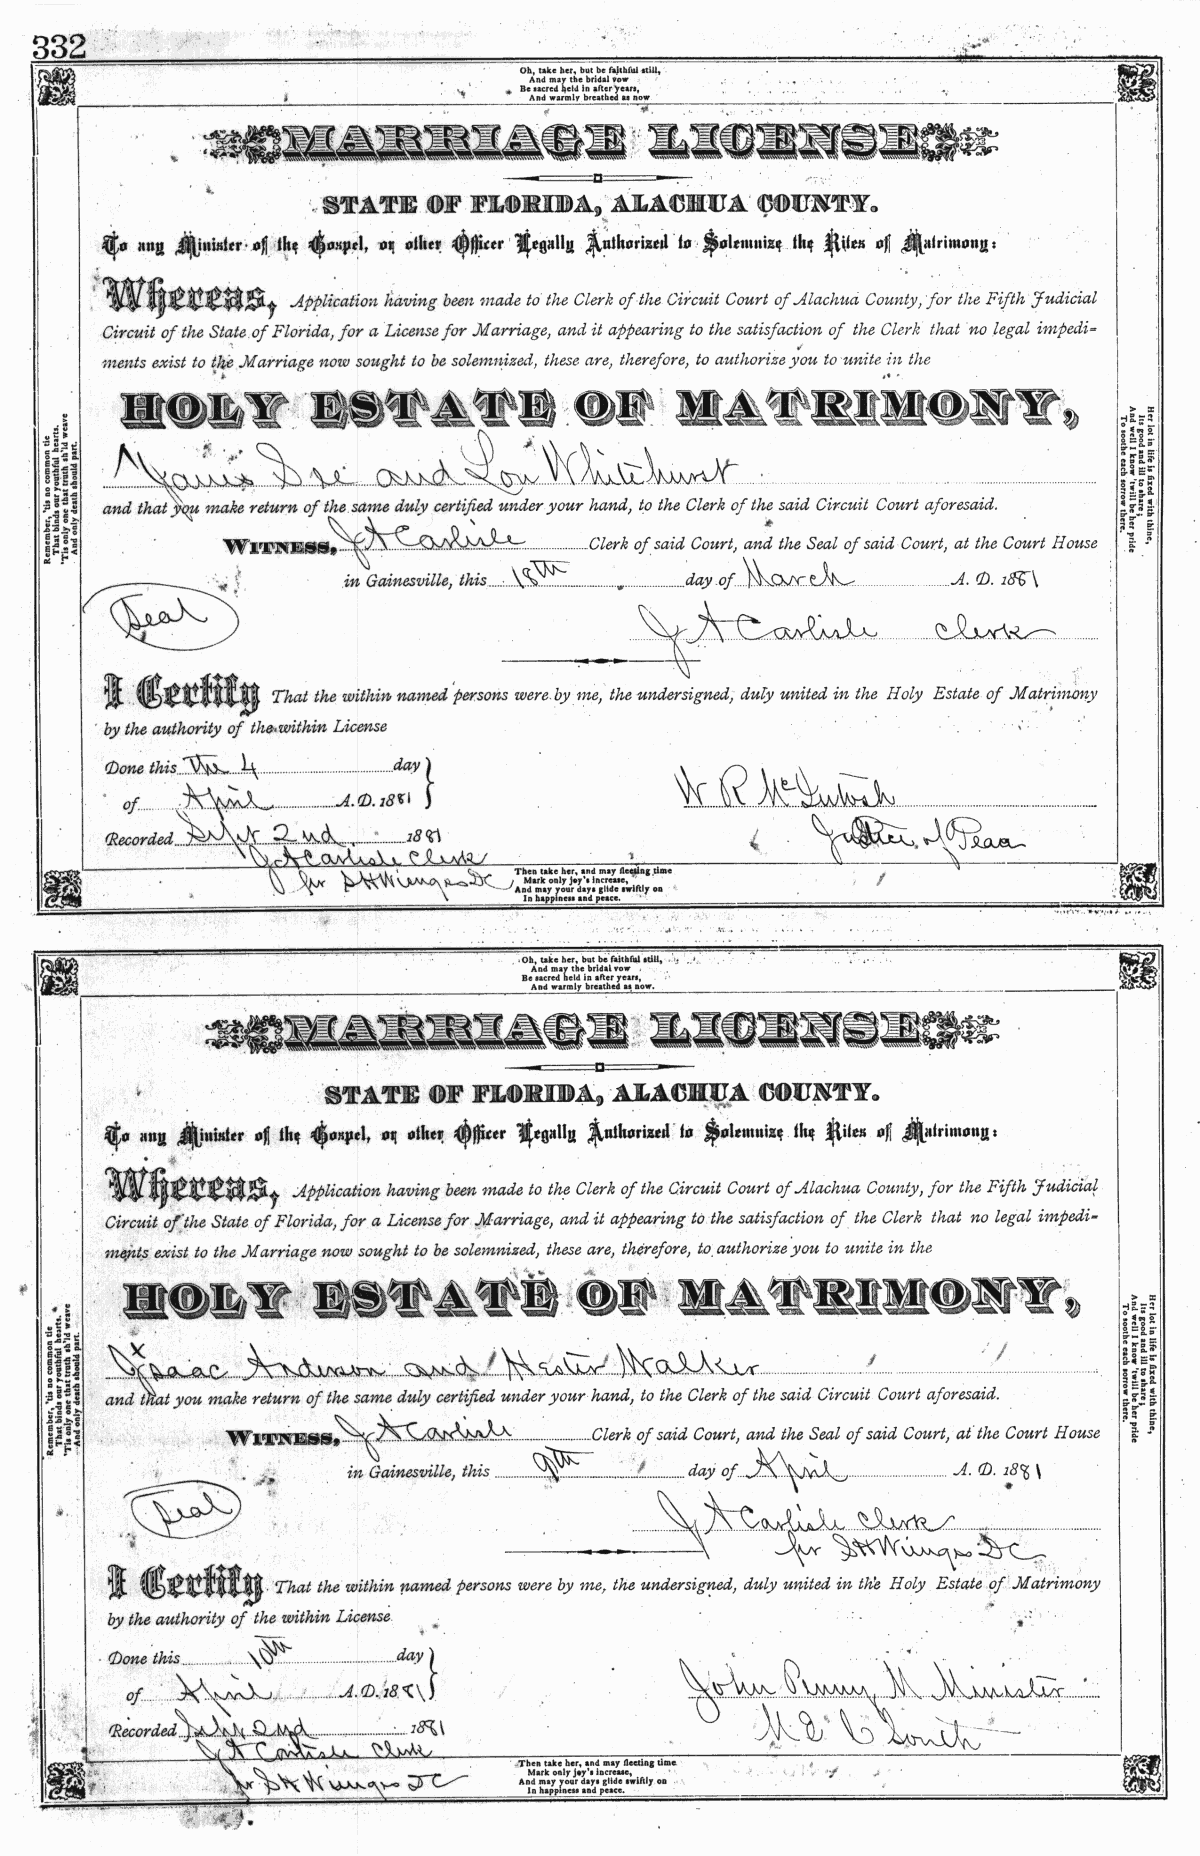 332
Oh, take her, but be faithful still,
And may the bridal vow
Be sacred held in after years,
And warmly breathed as now
MARRIAGE LICENSE
STATE OF FLORIDA, ALACHUA COUNTY.
To any Minister of the Gospel, or other Officer Legally Authorized to Solemnize the Rites of Matrimony:
Whereas, Application having been made to the Clerk of the Circuit Court of Alachua County, for the Fifth Judicial
Circuit of the State of Florida, for a License for Marriage, and it appearing to the satisfaction of the Clerk that no legal impedi-
ments exist to the Marriage now sought to be solemnized, these are, therefore, to authorize you to unite in the
HOLY ESTATE OF MATRIMONY,
James and Lou Whitehurst
and that you make return of the same duly certified under your hand, to the Clerk of the said Circuit Court aforesaid.
WITNESS, J A Carlisle Clerk of said Court, and the Seal of said Court, at the Court House
in Gainesville, this 18th day of March A. D. 1881
Seal
J A Carlisle Clerk
I Certify That the within named persons were by me, the undersigned, duly united in the Holy Estate of Matrimony
by the authority of the within License
Done this the 4 day
of April A.D. 1881
W R McIntosh
Recorded Sept 2nd 1881
Justice of Peace
J A Carlisle Clerk
pr S H Wienges DC
Then take her, and may fleeting time
Mark only joy's increase,
And may your days glide swiftly on
In happiness and peace.
Remember, 'tis no common tie
That binds our youthful hearts,
'Tis only one that truth sh'ld weave
And only death should part.
Her lot in life is fixed with thine,
Its good and ill to share;
And well I know 'twill be her pride
To soothe each sorrow there.
Oh, take her, but be faithful still,
And may the bridal vow
Be sacred held in after years,
And warmly breathed as now.
MARRIAGE LICENSE
STATE OF FLORIDA, ALACHUA COUNTY.
To any Minister of the Gospel, or other Officer Legally Authorized to Solemnize the Rites of Matrimony:
Whereas, Application having been made to the Clerk of the Circuit Court of Alachua County, for the Fifth Judicial
Circuit of the State of Florida, for a License for Marriage, and it appearing to the satisfaction of the Clerk that no legal impedi-
ments exist to the Marriage now sought to be solemnized, these are, therefore, to authorize you to unite in the
HOLY ESTATE OF MATRIMONY,
Isaac Anderson and Hester Walker
and that you make return of the same duly certified under your hand, to the Clerk of the said Circuit Court aforesaid.
WITNESS, J A Carlisle Clerk of said Court, and the Seal of said Court, at the Court House
in Gainesville, this 9th day of April A. D. 1881
Seal
J A Carlisle Clerk
pr S H Wienges DC
I Certify That the within named persons were by me, the undersigned, duly united in the Holy Estate of Matrimony
by the authority of the within License
Done this 10th day
of April A.D. 1881
John Penny M Minister
Recorded Sept 2nd 1881
M E C South
J A Carlisle Clerk
pr S H Wienges DC
Then take her, and may fleeting time
Mark only joy's increase,
And may your days glide swiftly on
In happiness and peace.
Remember, 'tis no common tie
That binds our youthful hearts.
'Tis only one that truth sh'ld weave
And only death should part.
Her lot in life is fixed with thine,
Its good and ill to share;
And well I know 'twill be her pride
To soothe each sorrow there.